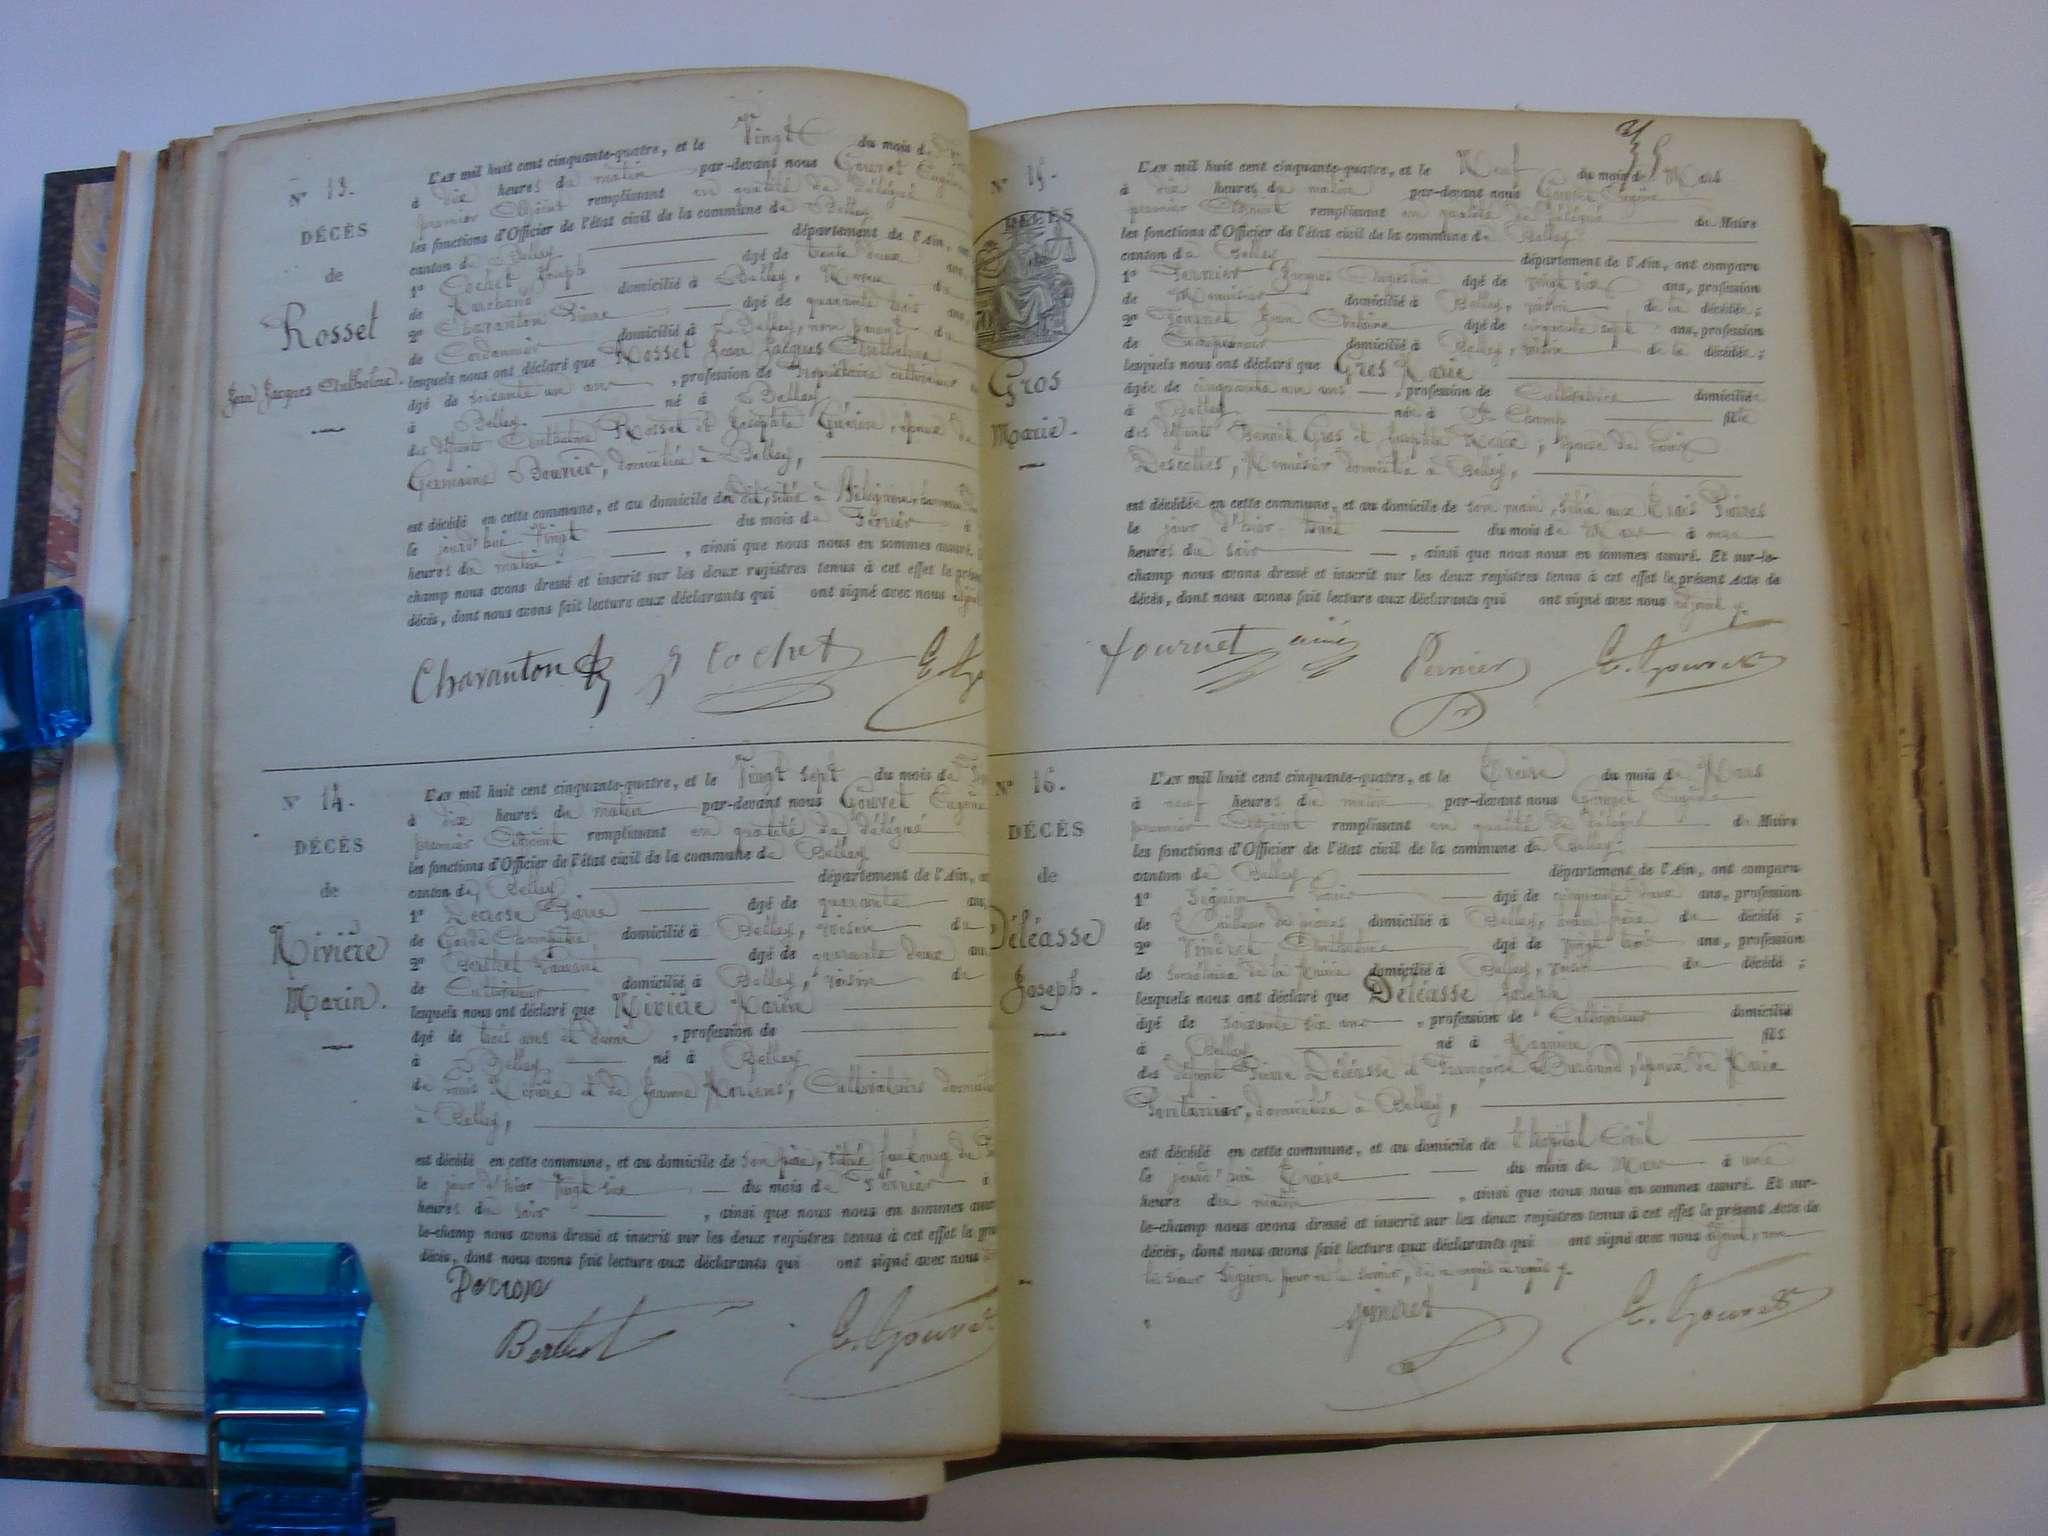 N° 13.
DÉCÈS
de
Rosset
Jean Jacques Anthelme.
L'AN mil huit cent cinquante-quatre, et le Vingt du mois de
à dix heures du matin par-devant nous Gouvet Eugène
premier Adjoint remplissant en qualité de délégué
les fonctions d'Officier de l'état civil de la commune de Belley
canton de Belley département de l'Ain, ont
1° Cochet Joseph âgé de trente deux ans,
de domicilié à Belley,
2° Chavanton Pierre âgé de quarante trois ans,
de Cordonnier domicilié à Belley, non parent du
lesquels nous ont déclaré que Rosset Jean Jacques Anthelme
âgé de soixante un ans, profession de Propriétaire cultivateur
à Belley. né à Belley
des défunts Anthelme Rosset et Josephte Guérin, époux de
Germaine Bouvier, domiciliée à Belley,
est décédé en cette commune, et au domicile du dit, situé à
le jourd'hui vingt du mois de Février à
heures du matin, ainsi que nous nous en sommes assuré.
champ nous avons dressé et inscrit sur les deux registres tenus à cet effet le présent
décès, dont nous avons fait lecture aux déclarants qui ont signé avec nous
Chavanton J Cochet
N° 14.
DÉCÈS
de
Rivière
Marin.
L'AN mil huit cent cinquante-quatre, et le Vingt sept du mois de
à dix heures du matin par-devant nous Gouvet Eugène
premier Adjoint remplissant en qualité de délégué
les fonctions d'Officier de l'état civil de la commune de Belley
canton de Belley département de l'Ain,
1° Decrose Pierre âgé de quarante ans,
de Garde Champêtre, domicilié à Belley, voisin du
2° Berthet âgé de quarante deux ans
de Cultivateur domicilié à Belley, voisin du
lesquels nous ont déclaré que Rivière Marin
âgé de trois ans et demi, profession de
à Belley né à Belley
de Louis Rivière et de Jeanne Cultivateurs
à Belley,
est décédé en cette commune, et au domicile de son père, situé faubourg
le jour d'hier vingt six du mois de Février à
heures du soir, ainsi que nous nous en sommes
le-champ nous avons dressé et inscrit sur les deux registres tenus à cet effet le
décès, dont nous avons fait lecture aux déclarants qui ont signé avec nous
Berthet E. Gouvet
35
N° 15.
DÉCÈS
Gros
Marie.
L'AN mil huit cent cinquante-quatre, et le Neuf du mois de Mars
à dix heures du matin par-devant nous Gouvet Eugène
premier Adjoint remplissant en qualité de délégué du Maire
les fonctions d'Officier de l'état civil de la commune de Belley
canton de Belley département de l'Ain, ont comparu
1° Pernier Jacques âgé de vingt six ans, profession
de Menuisier domicilié à Belley, voisin de la décédée;
2° Fournet Jean Antoine âgé de cinquante sept ans, profession
de Entrepreneur domicilié à Belley, voisin de la décédée;
lesquels nous ont déclaré que Gros Marie
âgée de cinquante ans, profession de Cultivatrice domiciliée
à Belley née à St Champ fille
des défunts Benoît Gros et Josephte épouse de Louis
Descottes, Menuisier domicilié à Belley,
est décédée en cette commune, et au domicile de son mari, situé aux
le jour d'hier huit du mois de Mars à onze
heures du soir, ainsi que nous nous en sommes assuré. Et sur-le-
champ nous avons dressé et inscrit sur les deux registres tenus à cet effet le présent Acte de
décès, dont nous avons fait lecture aux déclarants qui ont signé avec nous adjoint
fournet ainé Pernier E. Gouvet
N° 16.
DÉCÈS
de
Déléasse
Joseph.
L'AN mil huit cent cinquante-quatre, et le Treize du mois de Mars
à neuf heures du matin par-devant nous Gouvet Eugène
premier Adjoint remplissant en qualité de délégué du Maire
les fonctions d'Officier de l'état civil de la commune de Belley.
canton de Belley, département de l'Ain, ont comparu
1° Louis âgé de cinquante deux ans, profession
de Tailleur de pierres, domicilié à Belley, beau frère du décédé;
2° Anthelme âgé de vingt trois ans, profession
de Secrétaire de la Mairie domicilié à Belley, voisin du décédé;
lesquels nous ont déclaré que Déléasse Joseph
âgé de soixante six ans, profession de Cultivateur domicilié
à Belley né à fils
des défunts Pierre Déléasse et Françoise époux de Marie
domiciliée à Belley,
est décédé en cette commune, et au domicile de l'hôpital Civil
le jourd'hui Treize du mois de Mars à une
heure du matin, ainsi que nous nous en sommes assuré. Et sur-
le-champ nous avons dressé et inscrit sur les deux registres tenus à cet effet le présent Acte de
décès, dont nous avons fait lecture aux déclarants qui ont signé avec nous adjoint, non
le sieur pour ne le savoir, de ce requis
E. Gouvet